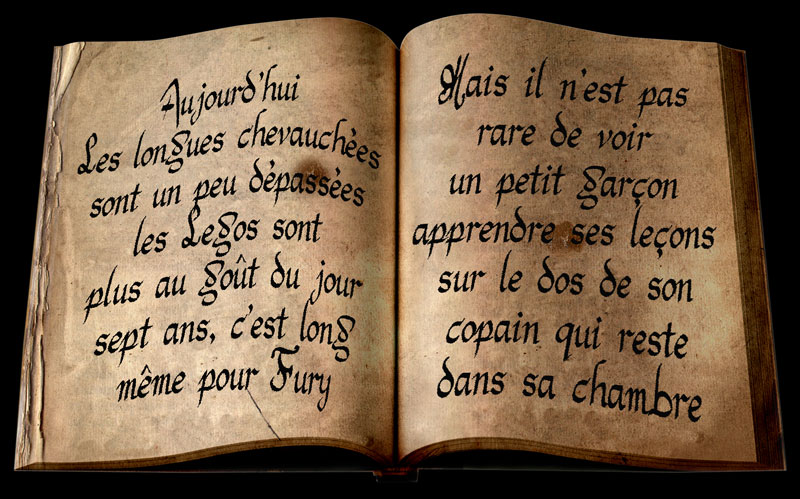 Aujourd'hui
Les longues chevauchées
sont un peu dépassées
les Legos sont
plus au goût du jour
sept ans, c'est long
même pour Fury
Mais il n'est pas
rare de voir
un petit garçon
apprendre ses leçons
sur le dos de son
copain qui reste
dans sa chambre